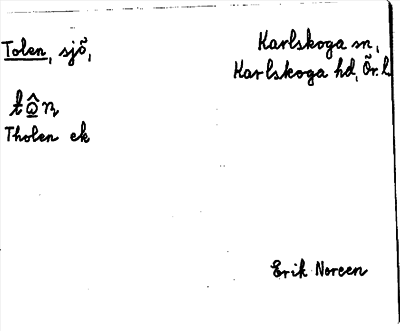 Tolen, sjö,
Karlskoga sn,
Karlskoga hd, Ör. l.
Tholen ek
Erik Noreen